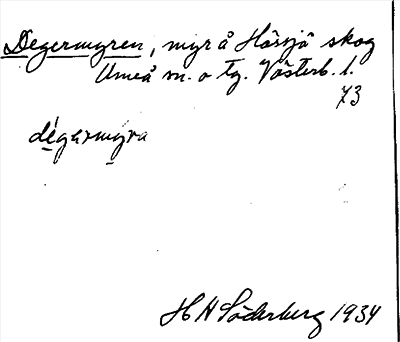 Degermyren, myr å Hössjö skog
Umeå sn. o tg. Västerb. l.
73
dégermyra
H H Söderberg 1934